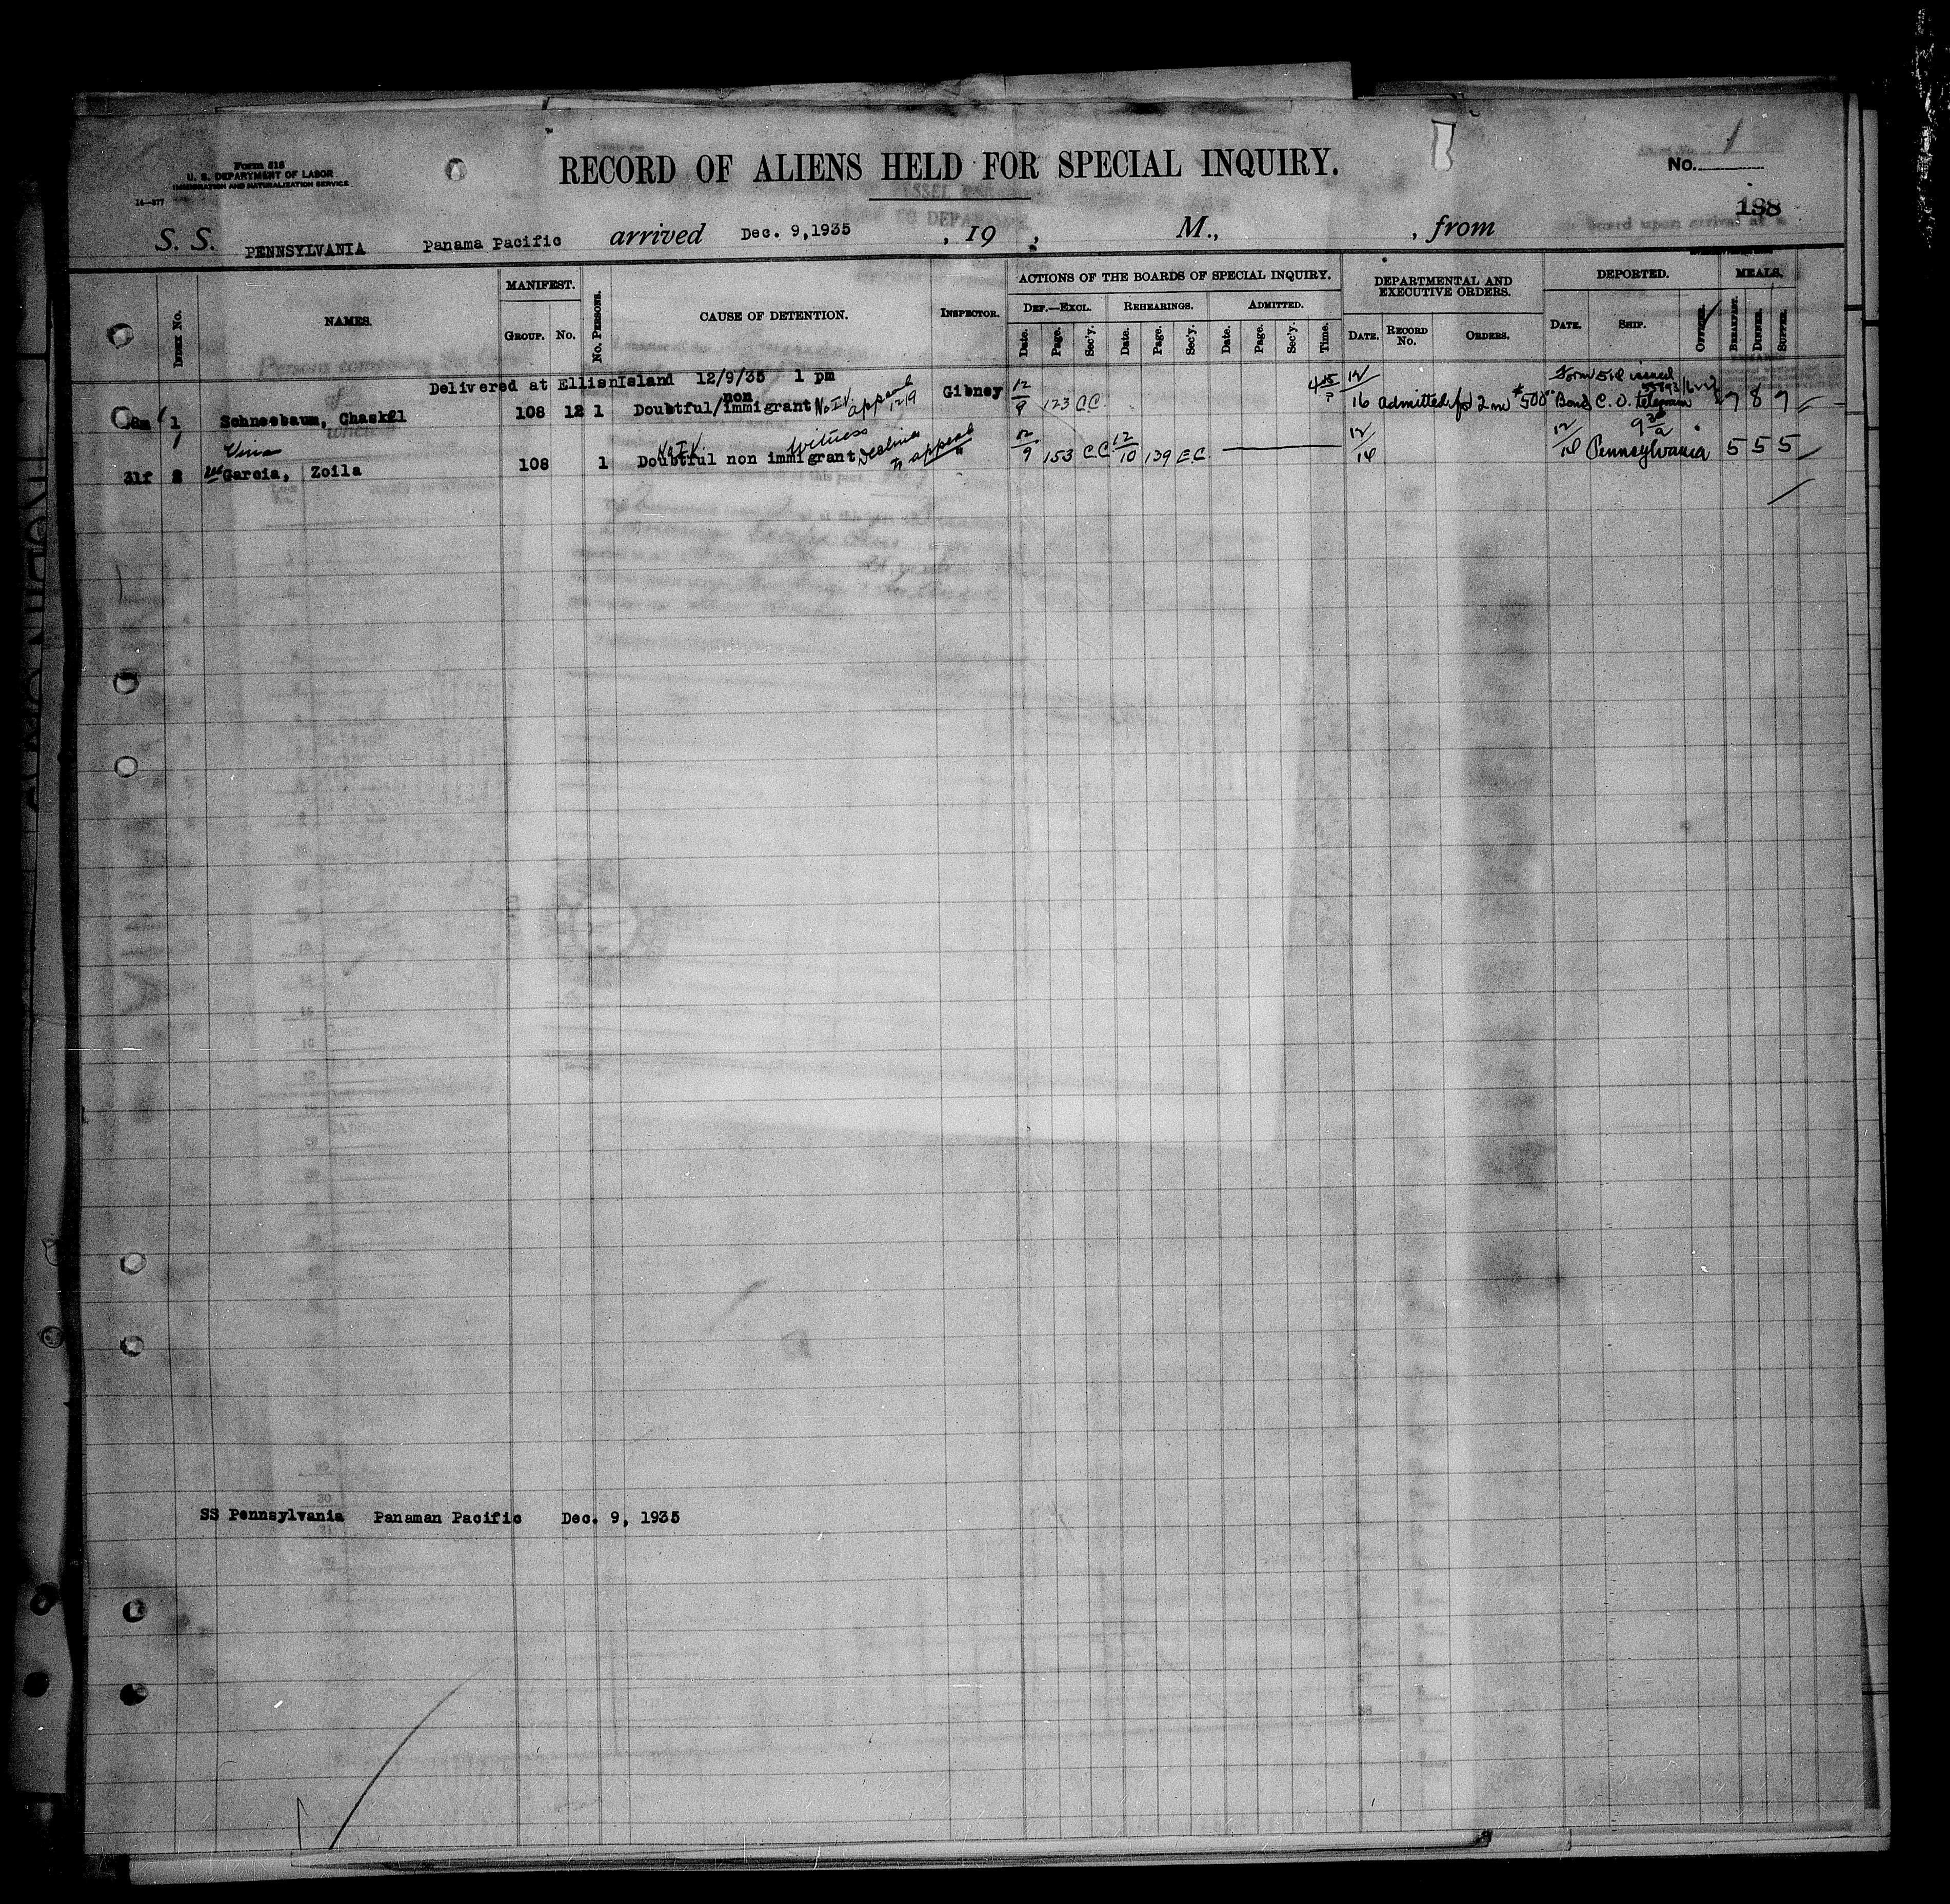 Form 518
U. S. DEPARTMENT OF LABOR
IMMIGRATION AND NATURALIZATION SERVICE
14—377
RECORD OF ALIENS HELD FOR SPECIAL INQUIRY.
No. 1
198
S. S. PENNSYLVANIA Panama Pacific arrived Dec. 9,1935, 19 , M., , from
INDEX No.
NAMES.
MANIFEST.
GROUP. No.
No. PERSONS.
CAUSE OF DETENTION.
INSPECTOR.
ACTIONS OF THE BOARDS OF SPECIAL INQUIRY.
DEF.—EXCL. REHEARINGS. ADMITTED.
Date. Page. Sec'y. Date. Page. Sec'y. Date. Page. Sec'y. Time.
DEPARTMENTAL AND EXECUTIVE ORDERS.
DATE. RECORD No. ORDERS.
DEPORTED.
DATE. SHIP. OFFICER.
MEALS.
BREAKFAST. DINNER. SUPPER.
Delivered at EllisnIsland 12/9/35 1 pm
1 Schneebaum, Chaskel 108 12 1 Doubtful/non immigrant No I.V. appeal 12/9 Gibney 12/9 123 C.C. 12/16 admitted for 2 m $500 Bond C. O. telegram 7 8 7
Form 518 issued
31f 2 Garcia, Zoila 108 1 Doubtful non immigrant No I.V. witness 12/9 153 C.C. 12/10 139 E.C. Pennsylvania 5 5 5
SS Pennsylvania Panaman Pacific Dec. 9, 1935